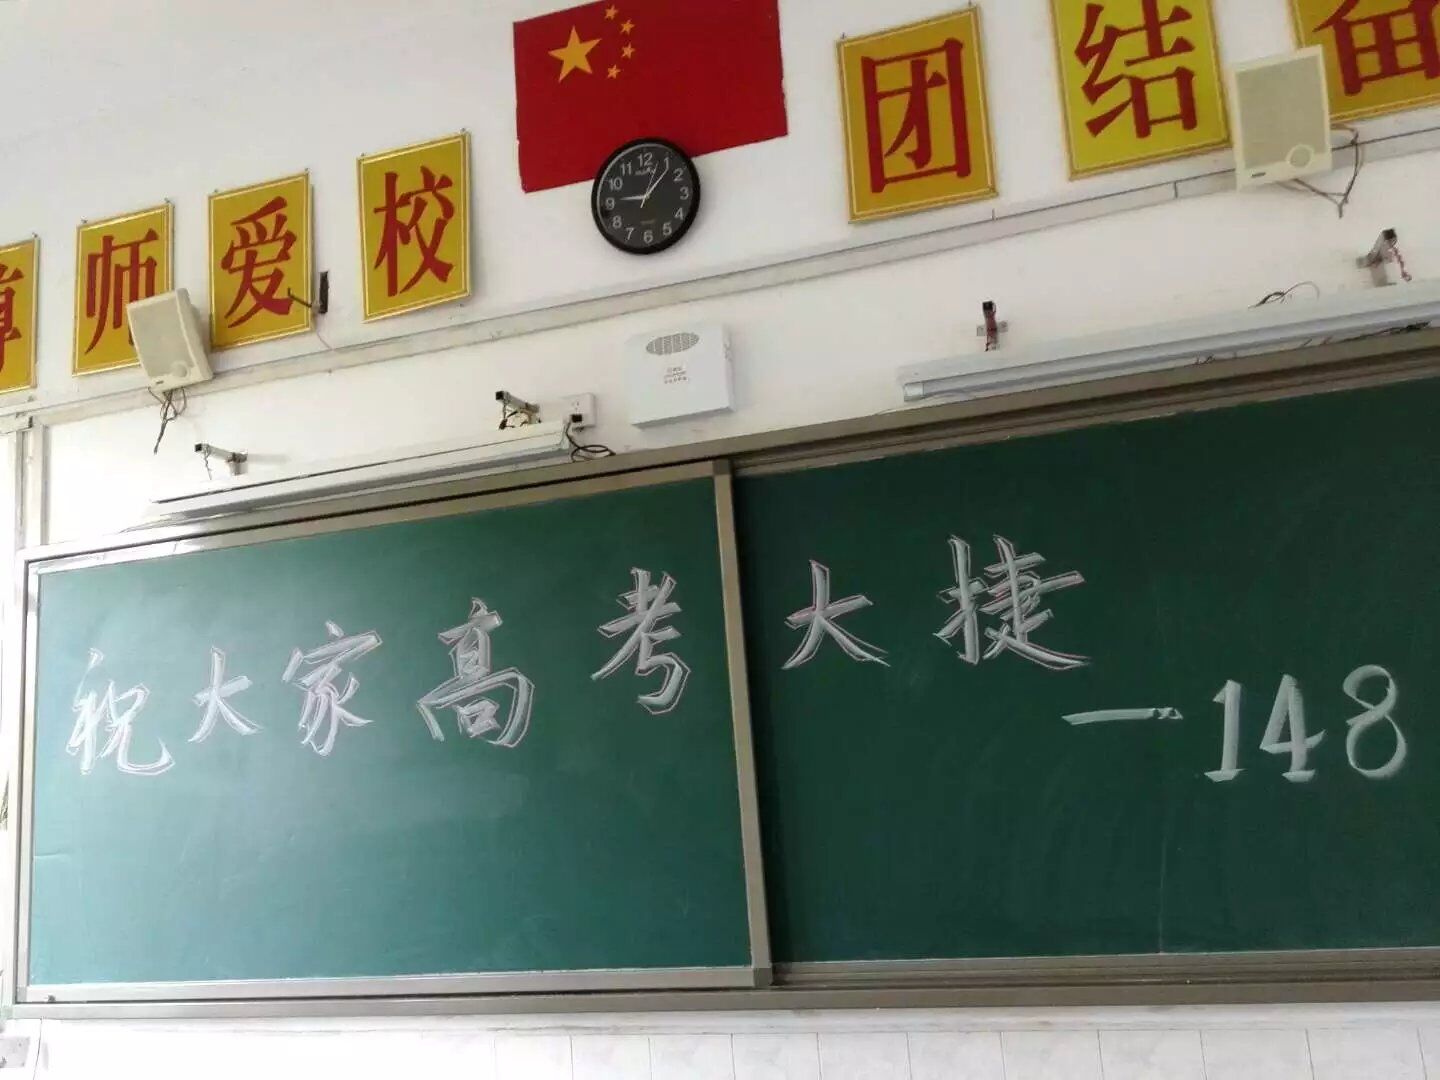 尊师爱校
团结奋
12
1
2
3
4
5
6
7
8
9
10
11
祝大家高考大捷
一148